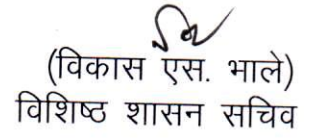 (विकास एस. भाले)
विशिष्ठ शासन सचिव